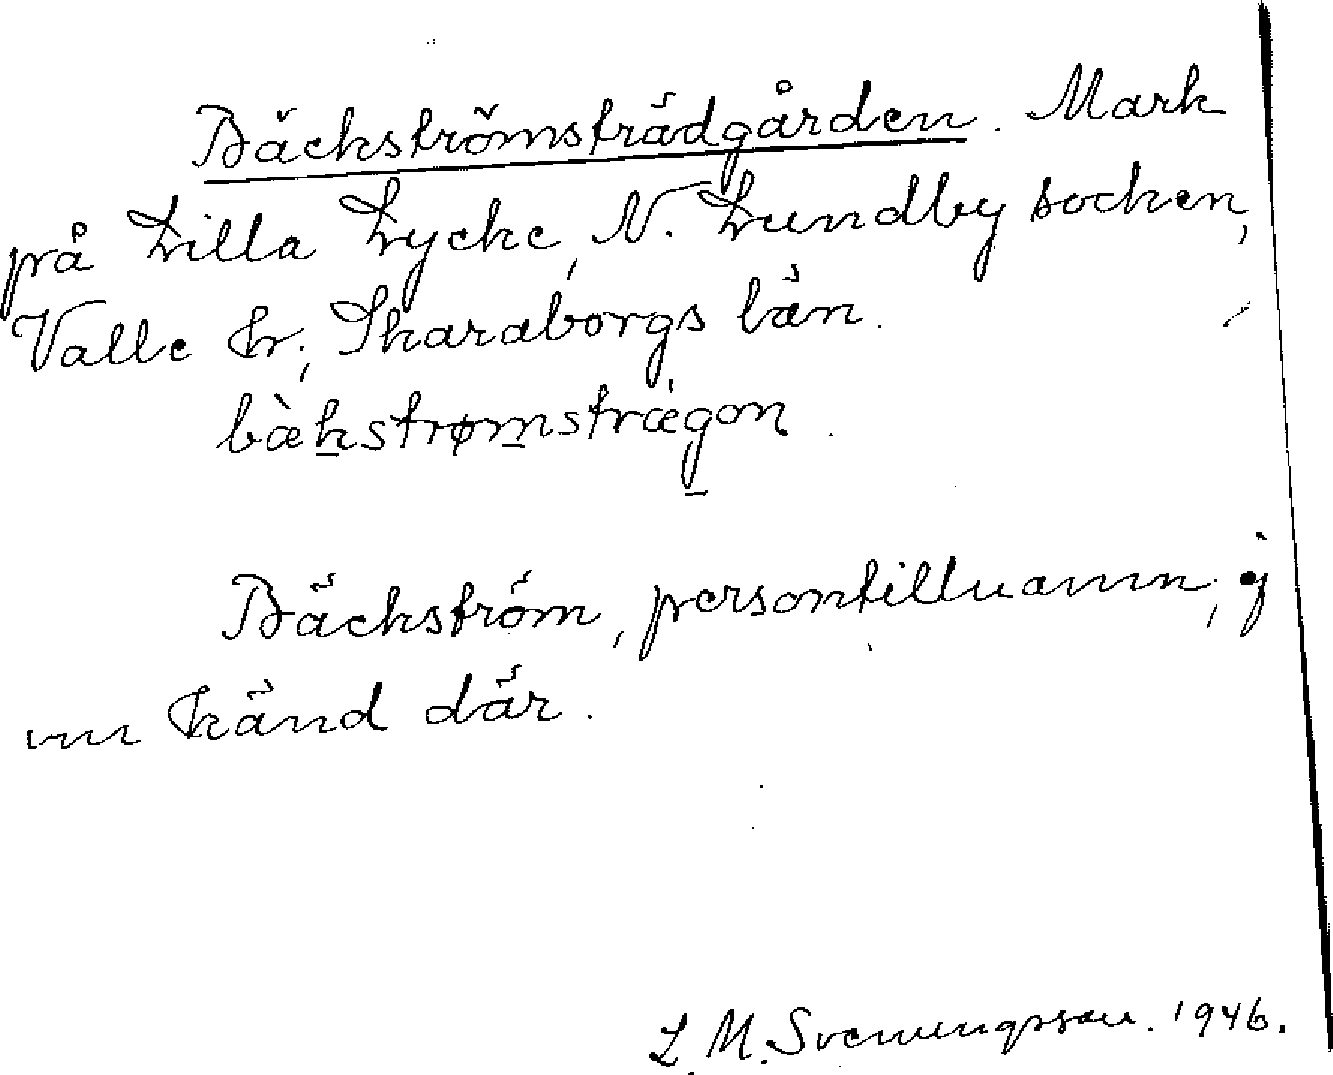 Bäckströmsträdgården. Mark
på Lilla Lycke, N. Lundby socken,
Valle hr, Skaraborgs län.
bæ̀kstrømstrægon.
Bäckström, persontillnamn, ej
nu känd där.
L. M. Svenungsson. 1946.